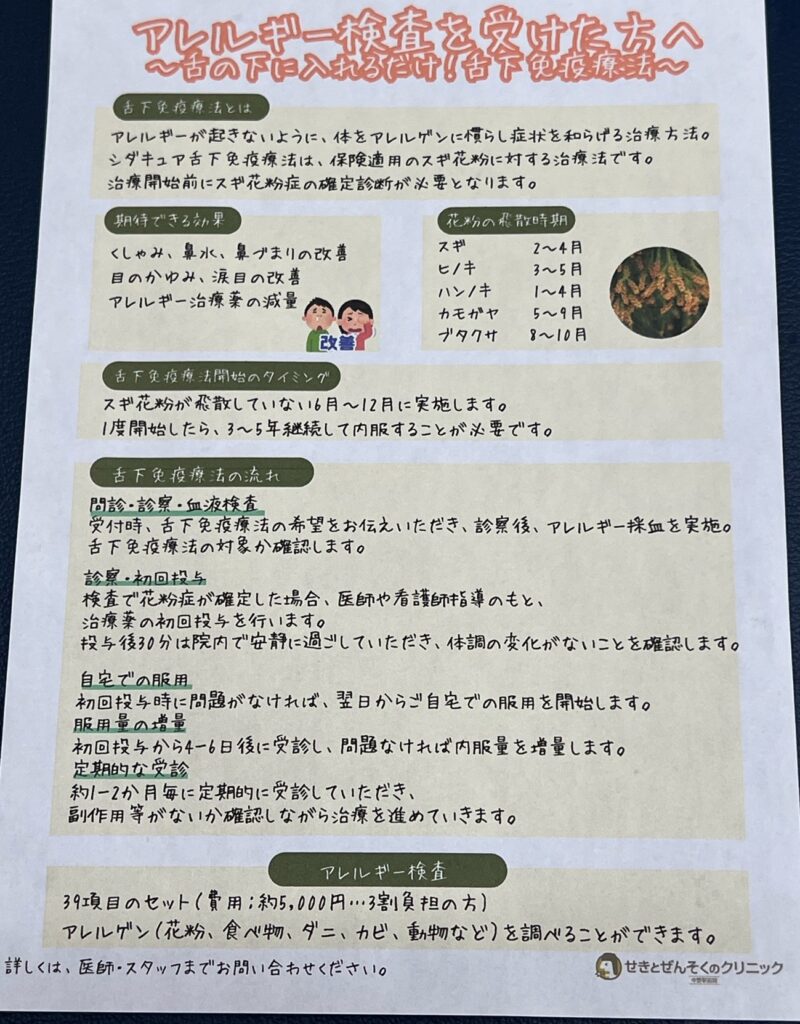 アレルギー検査を受けた方へ
～舌の下に入れるだけ！舌下免疫療法～
舌下免疫療法とは
アレルギーが起きないように、体をアレルゲンに慣らし症状を和らげる治療方法。
シダキュア舌下免疫療法は、保険適用のスギ花粉に対する治療法です。
治療開始前にスギ花粉症の確定診断が必要となります。
期待できる効果
くしゃみ、鼻水、鼻づまりの改善
目のかゆみ、涙目の改善
アレルギー治療薬の減量
改善
花粉の飛散時期
スギ 2～4月
ヒノキ 3～5月
ハンノキ 1～4月
カモガヤ 5～9月
ブタクサ 8～10月
舌下免疫療法開始のタイミング
スギ花粉が飛散していない6月～12月に実施します。
1度開始したら、3～5年継続して内服することが必要です。
舌下免疫療法の流れ
問診・診察・血液検査
受付時、舌下免疫療法の希望をお伝えいただき、診察後、アレルギー採血を実施。
舌下免疫療法の対象か確認します。
診察・初回投与
検査で花粉症が確定した場合、医師や看護師指導のもと、
治療薬の初回投与を行います。
投与後30分は院内で安静に過ごしていただき、体調の変化がないことを確認します。
自宅での服用
初回投与時に問題がなければ、翌日からご自宅での服用を開始します。
服用量の増量
初回投与から4-6日後に受診し、問題なければ内服量を増量します。
定期的な受診
約1-2か月毎に定期的に受診していただき、
副作用等がないか確認しながら治療を進めていきます。
アレルギー検査
39項目のセット（費用；約5,000円…3割負担の方）
アレルゲン（花粉、食べ物、ダニ、カビ、動物など）を調べることができます。
詳しくは、医師・スタッフまでお問い合わせください。
せきとぜんそくのクリニック